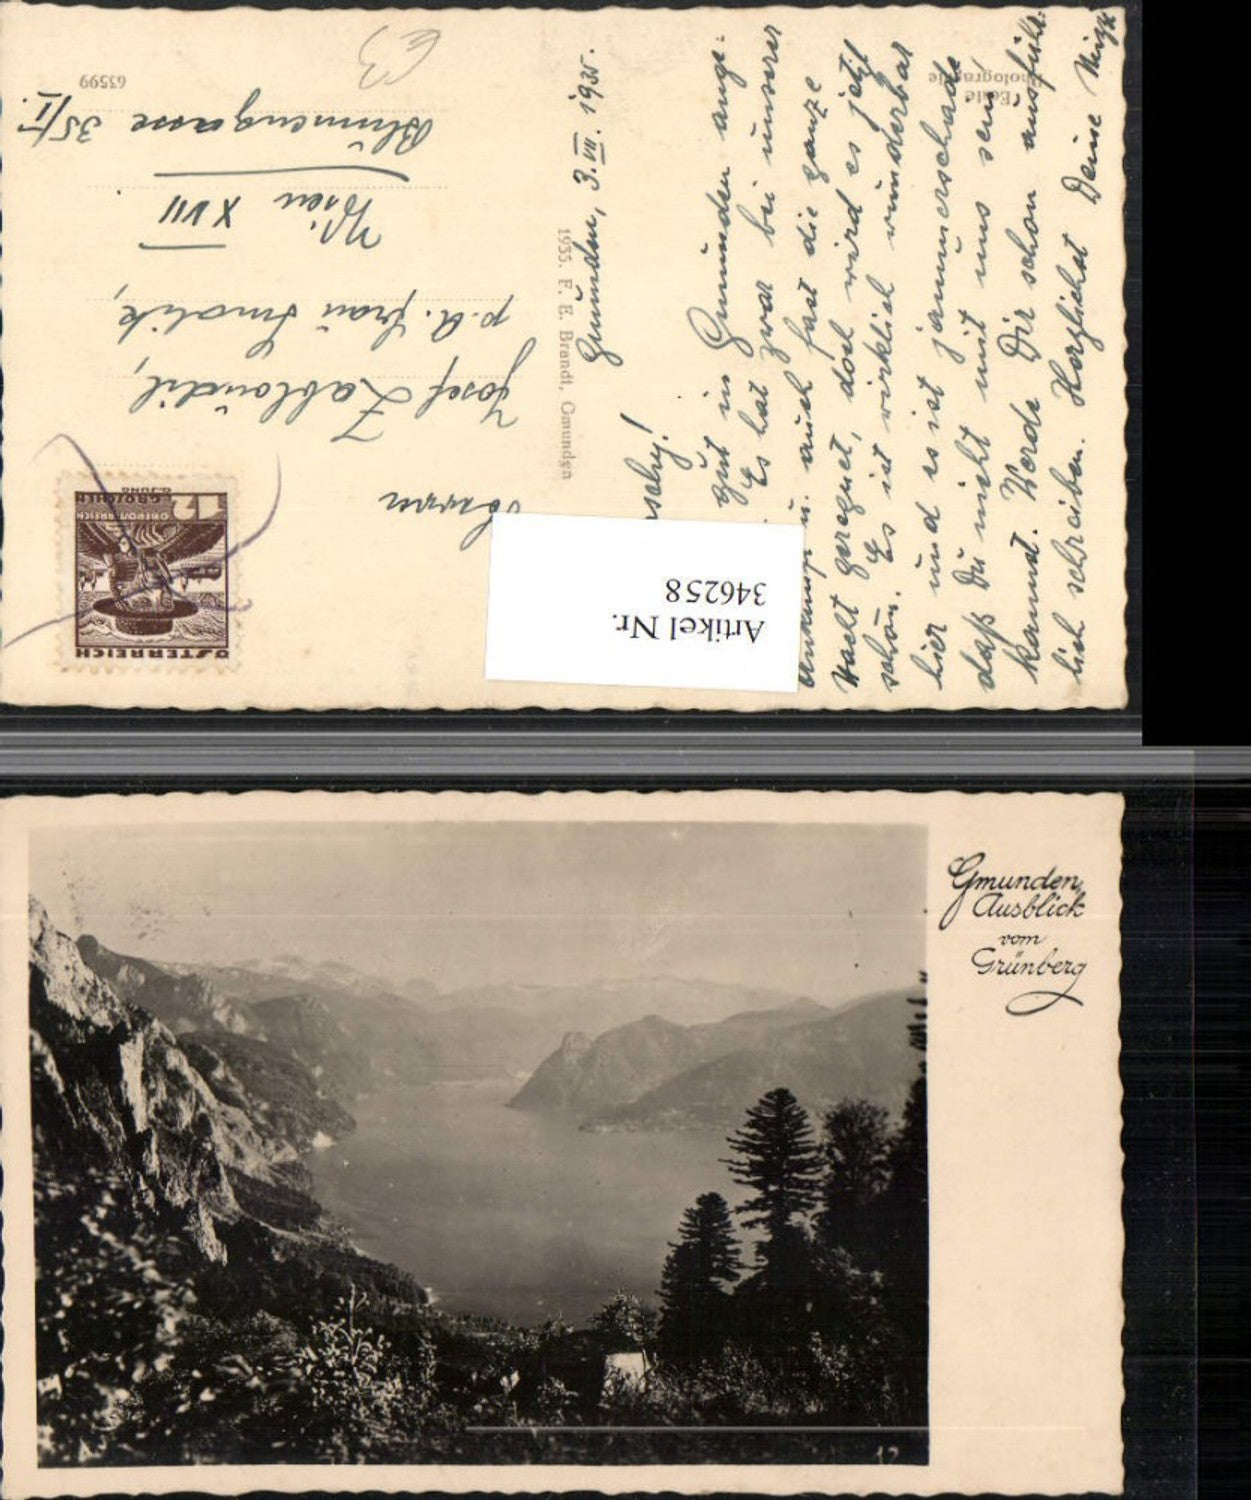 63599
Herrn
Josef Zabloudil,
p. A. Frau Smolik,
Wien XVII
Blumengasse 35/I.
ÖSTERREICH
OBERÖSTERREICH
12
GROSCHEN
Artikel Nr.
346258
1955. F. E. Brandt, Gmunden
Echte
Photographie
Gmunden, 3. VII. 1935.
gut in Gmunden ange-
Es hat zwar bei unserer
Ankunft u. auch fast die ganze
Nacht geregnet, doch wird es jetzt
schön. Es ist wirklich wunderbar
hier und es ist jammerschade
daß Du nicht mit uns sein
kannst. Werde Dir schon ausführ-
lich schreiben. Herzlichst Deine Mizzi
Gmunden,
Ausblick
vom
Grünberg
12